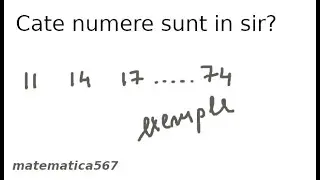 Cate numere sunt in sir?
11 14 17 ..... 74
exemple
matematica567